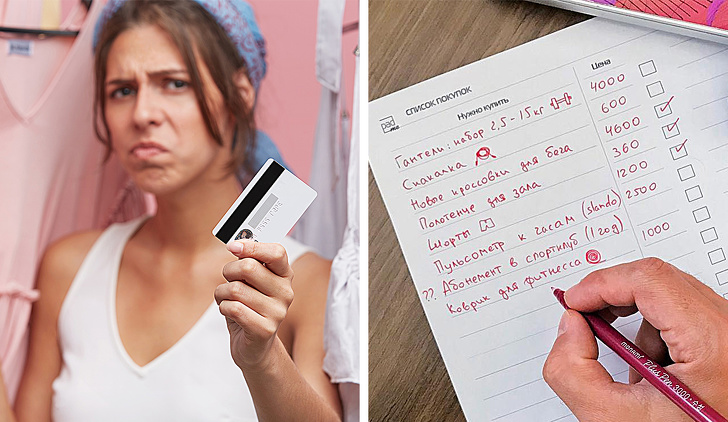 СПИСОК ПОКУПОК
Нужно купить Цена
Гантели: набор 2,5 - 15 кг 4000
Скакалка 600
Новые кроссовки для бега 4600
Полотенце для зала 360
Шорты 1200
Пульсометр к часам (slando) 2500
??. Абонемент в спортклуб (120д)
Коврик для фитнесса 1000
pad
monami Plus Pen 3000